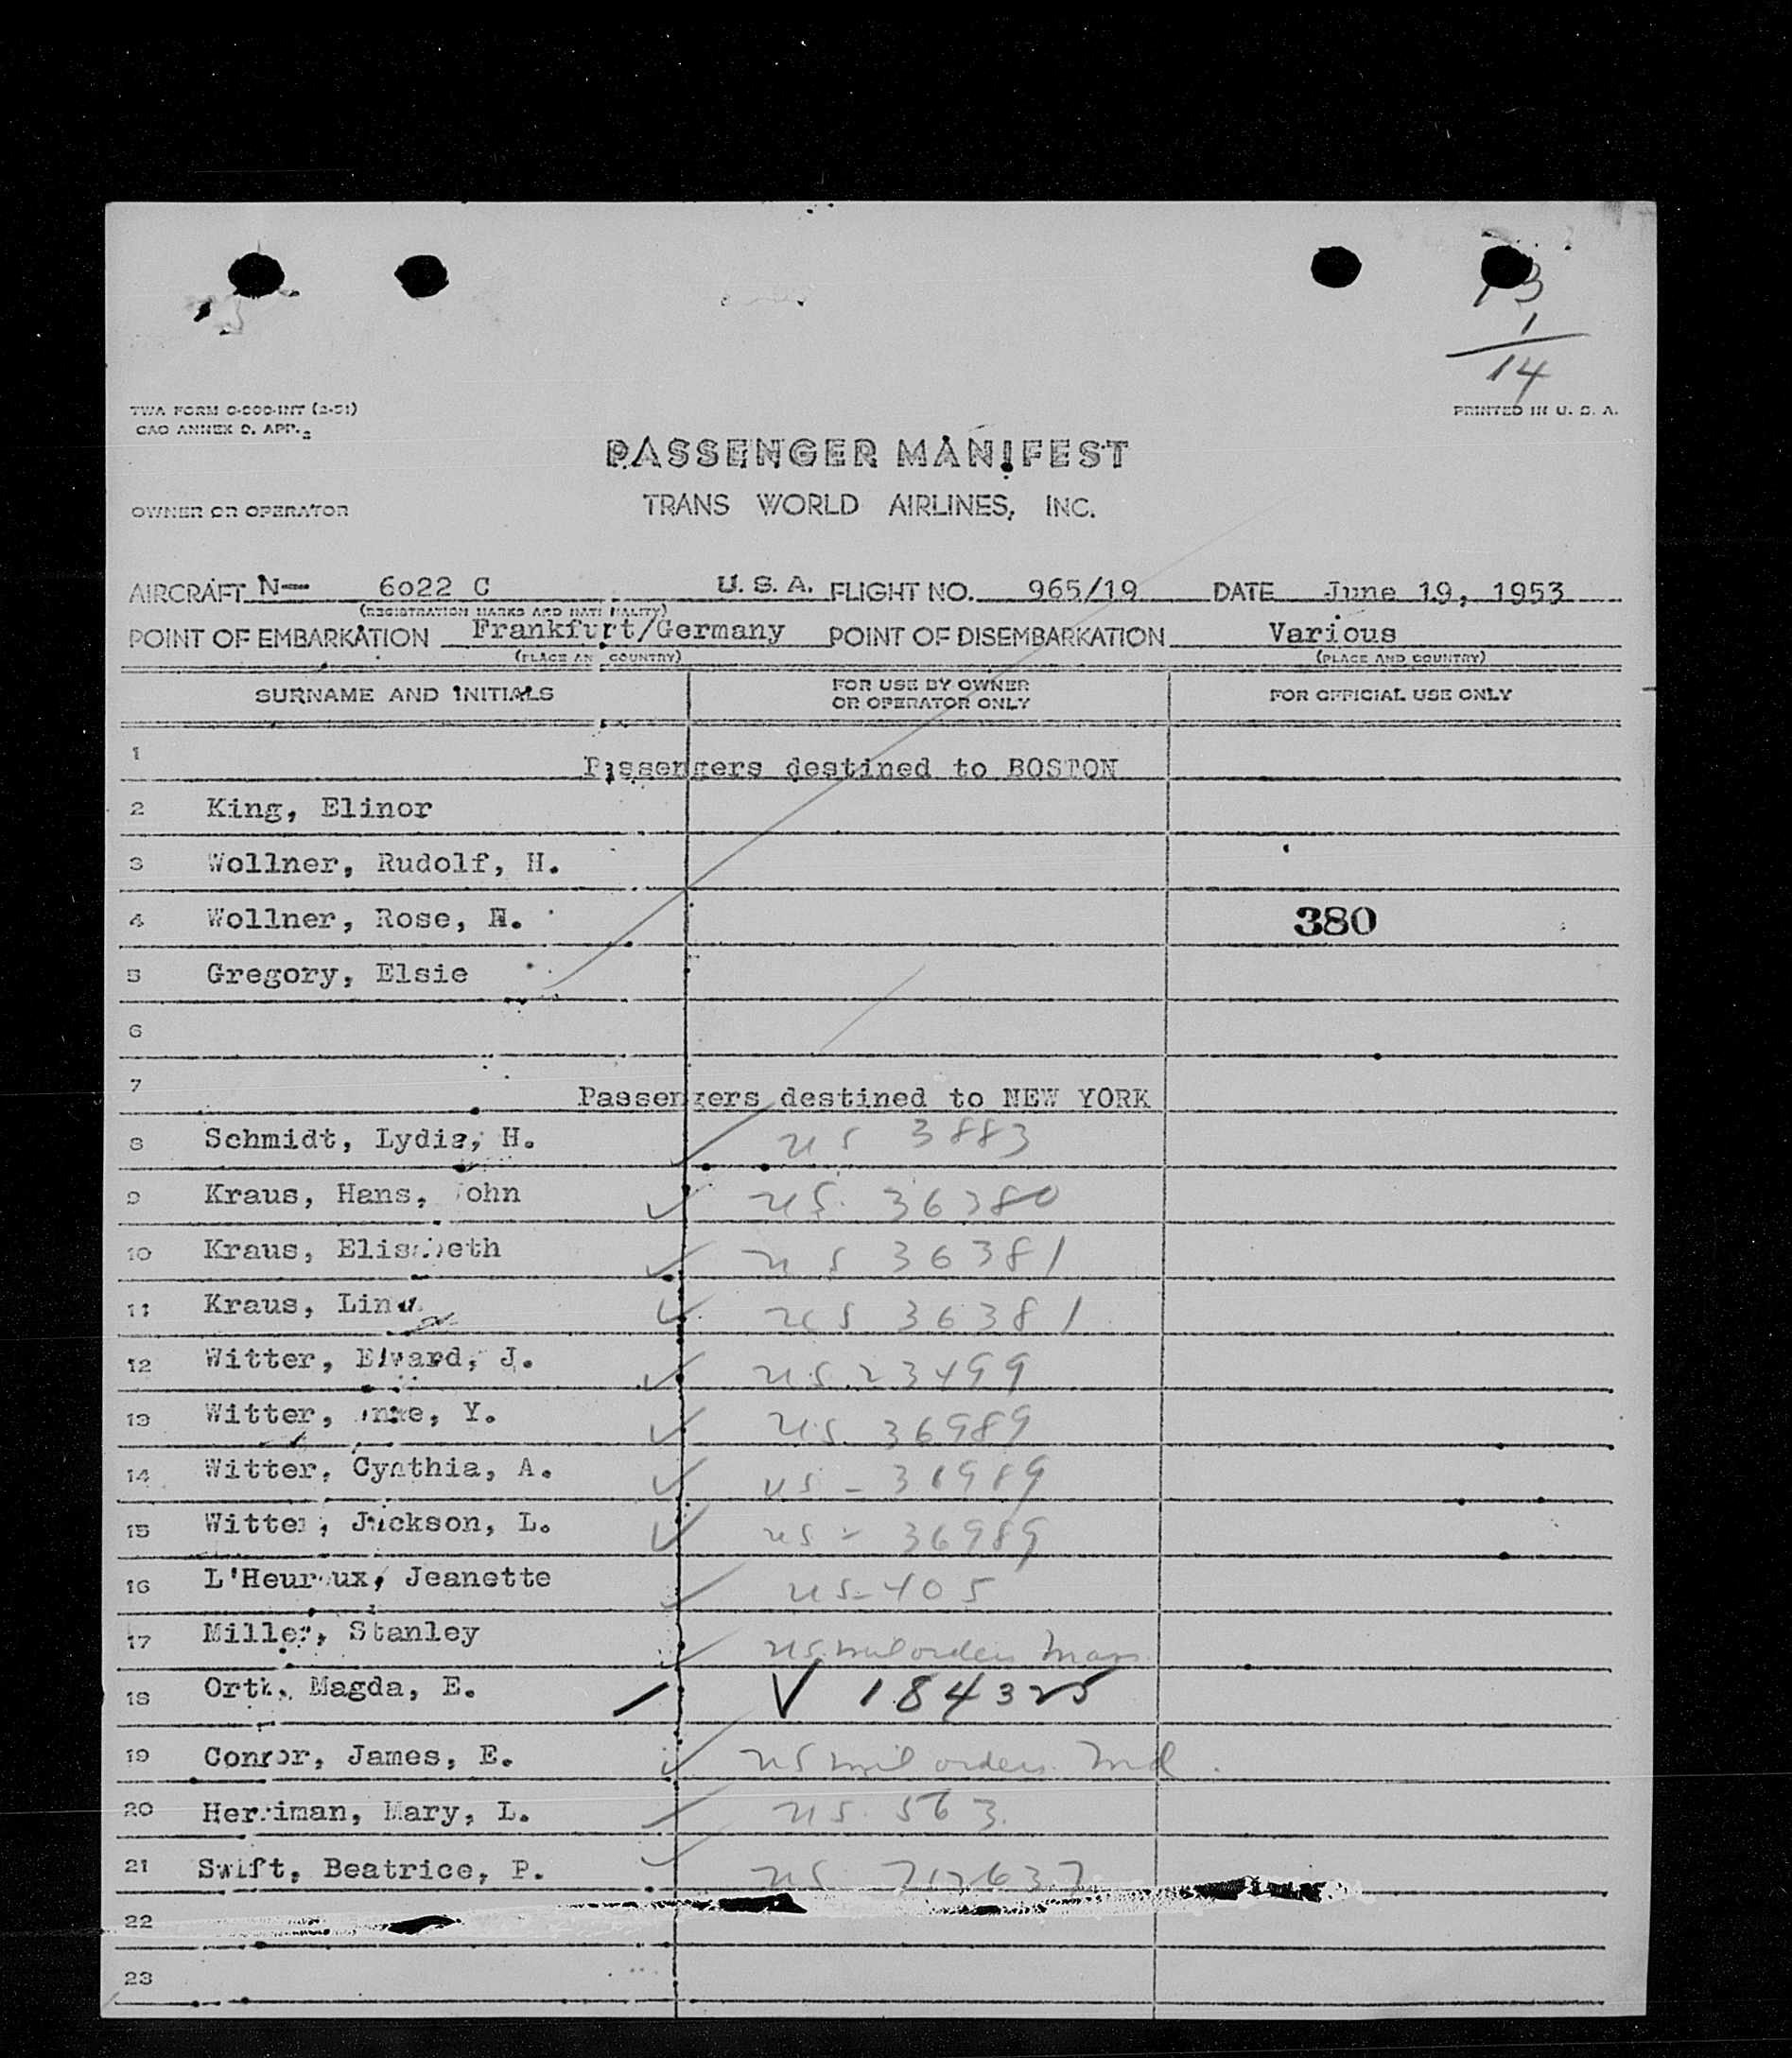 13
1
14
TWA FORM O-300-INT (2-51)
CAO ANNEX 9. APP. 2
PRINTED IN U. S. A.
PASSENGER MANIFEST
OWNER OR OPERATOR
TRANS WORLD AIRLINES, INC.
AIRCRAFT N- 6022 C U. S. A. FLIGHT NO. 965/19 DATE June 19, 1953
(REGISTRATION MARKS AND NATIONALITY)
POINT OF EMBARKATION Frankfurt/Germany POINT OF DISEMBARKATION Various
(PLACE AND COUNTRY) (PLACE AND COUNTRY)
SURNAME AND INITIALS FOR USE BY OWNER OR OPERATOR ONLY FOR OFFICIAL USE ONLY
1 Passengers destined to BOSTON
2 King, Elinor
3 Wollner, Rudolf, H.
4 Wollner, Rose, H. 380
5 Gregory, Elsie
6
7 Passengers destined to NEW YORK
8 Schmidt, Lydia, H. US 3883
9 Kraus, Hans, John US. 36380
10 Kraus, Elisabeth US 36381
11 Kraus, Linda US 36381
12 Witter, Edward, J. US. 23499
13 Witter, Anne, Y. US. 36989
14 Witter, Cynthia, A. US - 36989
15 Witter, Jackson, L. US - 36989
16 L'Heureux, Jeanette US-405
17 Miller, Stanley US mil orders Mass
18 Orth, Magda, E. V 184325
19 Connor, James, E. US mil orders Md.
20 Herriman, Mary, L. US. 563.
21 Swift, Beatrice, P. US 712637
22
23